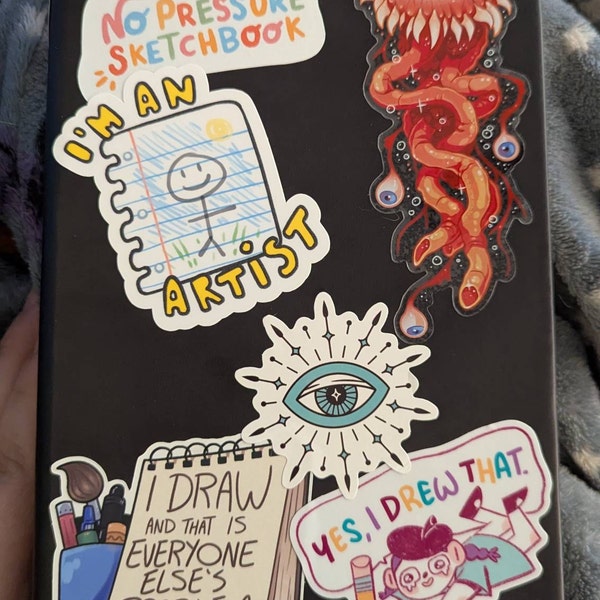 NO PRESSURE
SKETCHBOOK
I'M AN
ARTIST
I DRAW
AND THAT IS
EVERYONE
ELSE'S
YES, I DREW THAT.